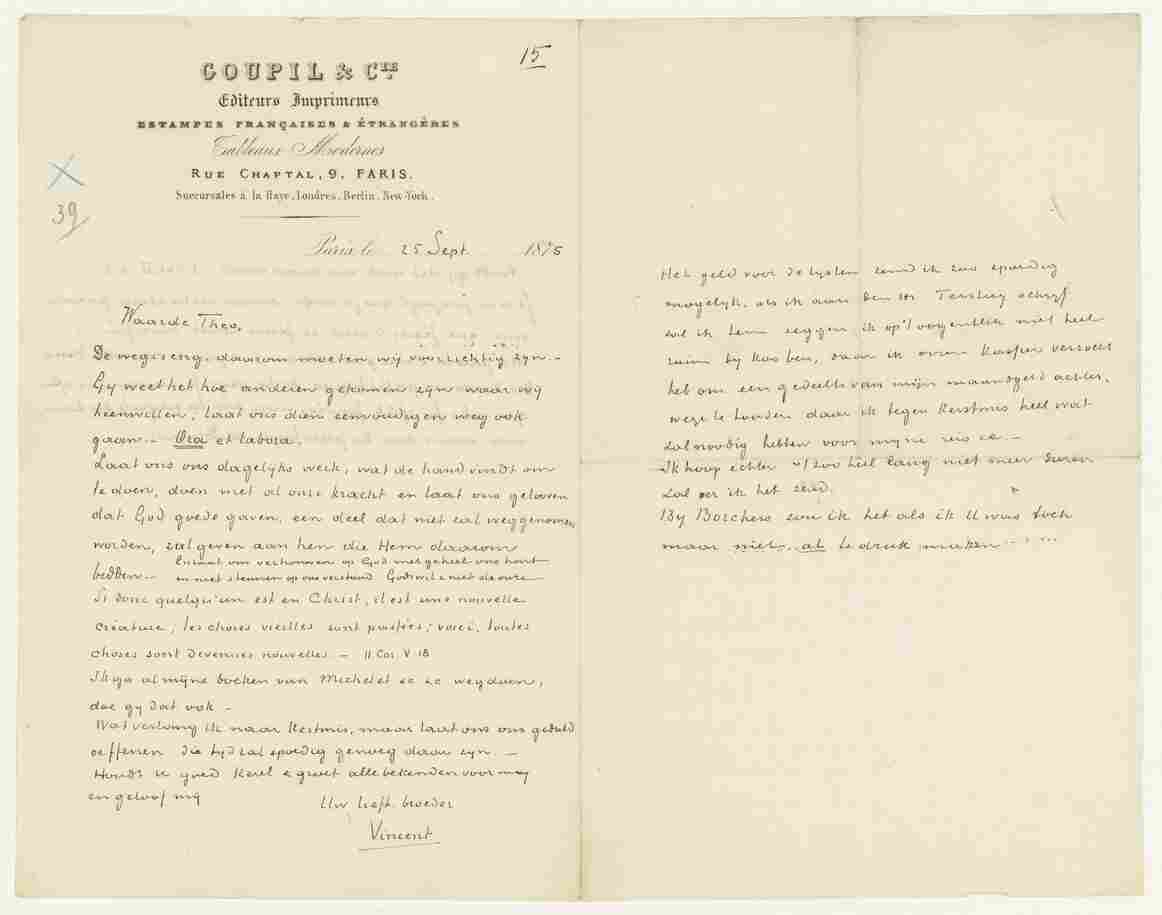 15
GOUPIL & CIE
Editeurs Imprimeurs
ESTAMPES FRANÇAISES & ÉTRANGÈRES
Tableaux Modernes
RUE CHAPTAL, 9, PARIS.
Succursales à la Haye, Londres, Berlin, New-York.
X
39
Paris, le 25 Sept. 1875
Waarde Theo,
De weg is eng, daarom moeten wij voorzichtig zijn.–
Gij weet het hoe anderen gekomen zijn waar wij
heenwillen, laat ons dien eenvoudigen weg ook
gaan.– Ora et labora.
Laat ons ons dagelijks werk, wat de hand vindt om
te doen, doen met al onze kracht en laat ons gelooven
dat God goede gaven, een deel dat niet zal weggenomen
worden, zal geven aan hen die Hem daarom
bidden.–
En laat ons vertrouwen op God met geheel ons hart
en niet steunen op ons verstand. Gods wil & niet de onze
Si donc quelqu'un est en Christ, il est une nouvelle
créature; les choses vieilles sont passées; voici, toutes
choses sont devenues nouvelles.– II Cor. V 18
Ik ga al mijne boeken van Michelet &c &c wegdoen,
doe gij dat ook.–
Wat verlang ik naar Kerstmis, maar laat ons ons geduld
oeffenen die tijd zal spoedig genoeg daar zijn.–
Houdt U goed kerel & groet alle bekenden voor mij
en geloof mij
Uw liefh. broeder
Vincent
Het geld voor de lijsten zend ik zoo spoedig
mogelijk, als ik aan den Hr Tersteeg schrijf
zal ik hem zeggen ik op 't oogenblik niet heel
ruim bij kas ben, daar ik onzen Kassier verzocht
heb om een gedeelte van mijn maandgeld achter-
wege te houden daar ik tegen Kerstmis heel wat
zal noodig hebben voor mijne reis &c.–
Ik hoop echter 't zoo heel lang niet meer duren
zal eer ik het zend.
Bij Borchers zou ik het als ik U was toch
maar niet al te druk maken......